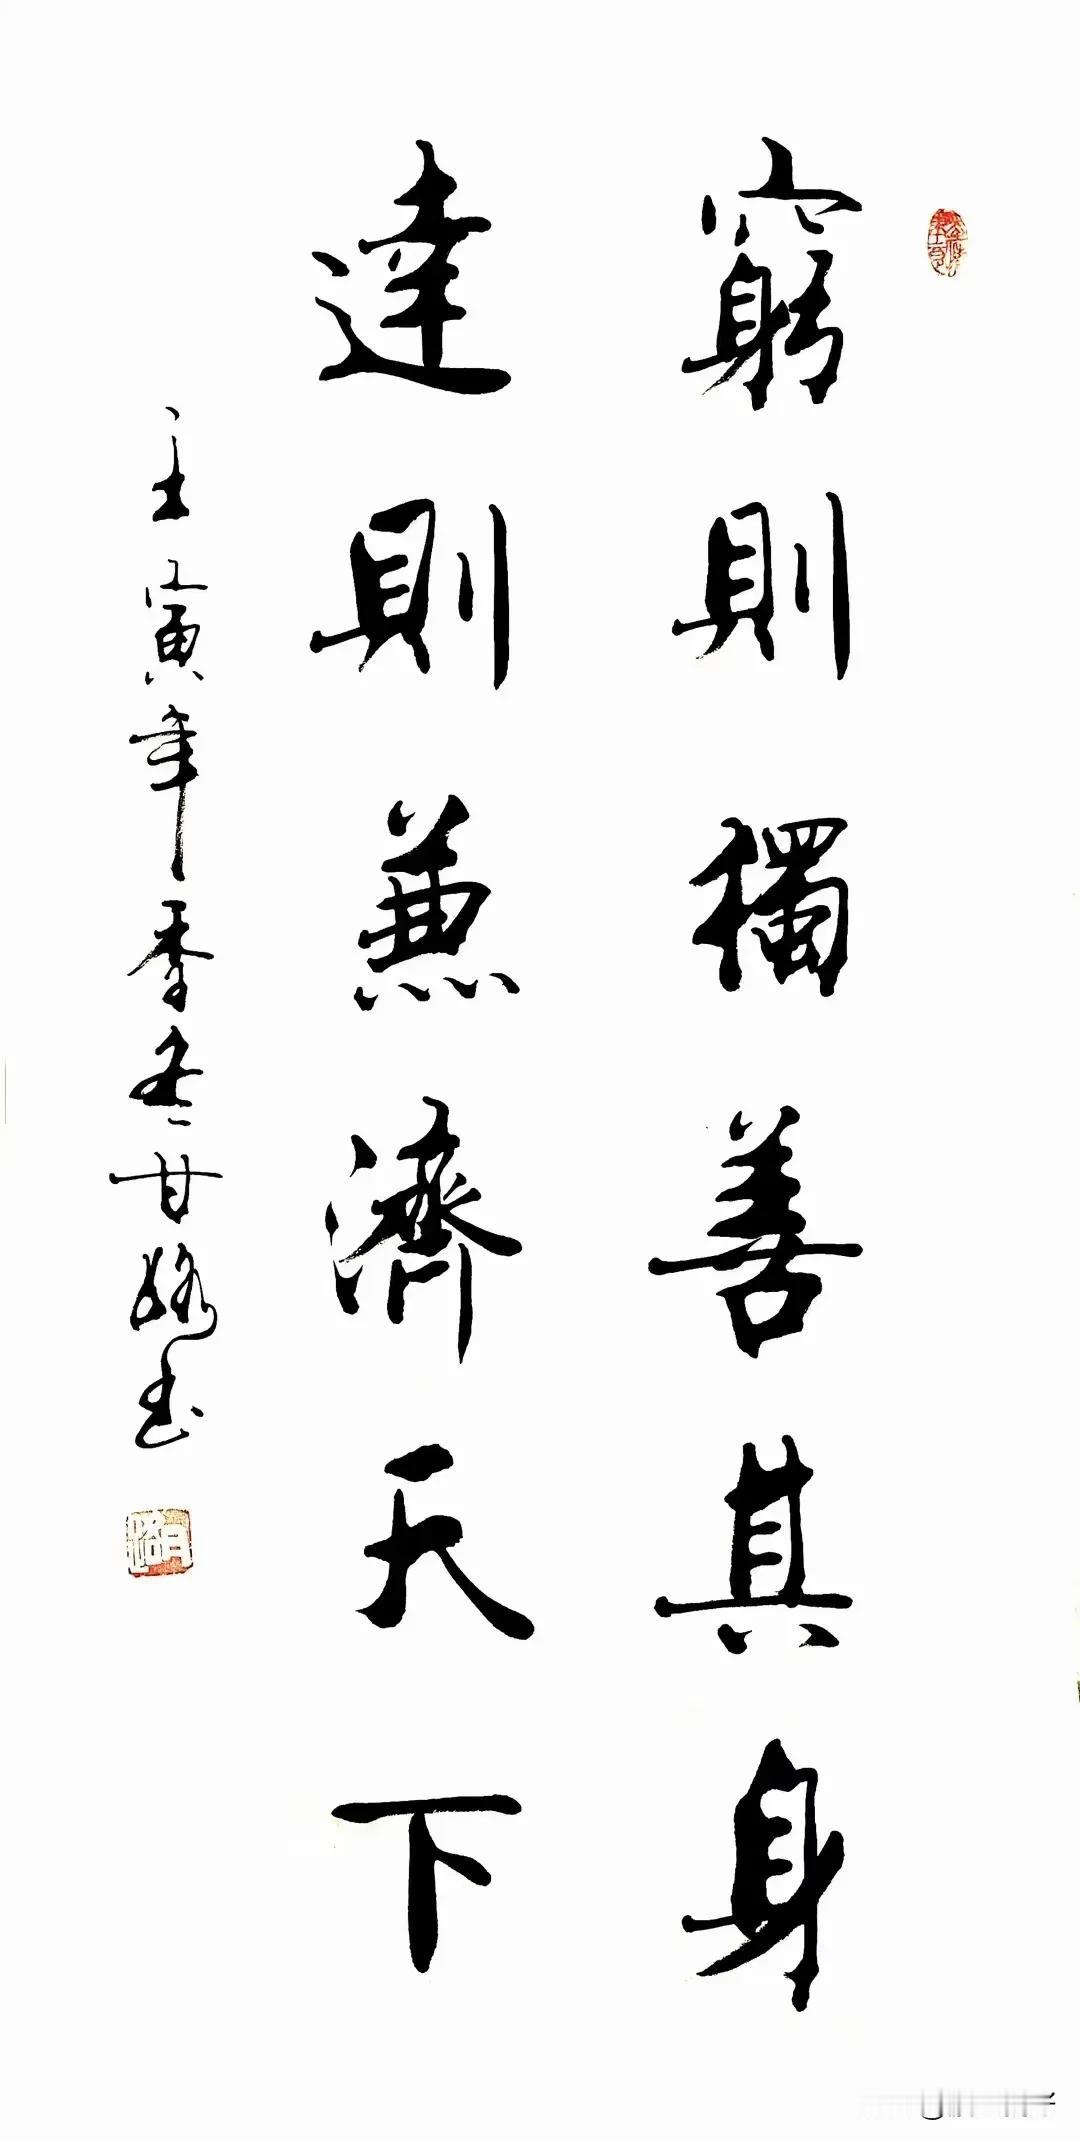 窮則獨善其身
達則兼濟天下
壬寅年季冬甘路書